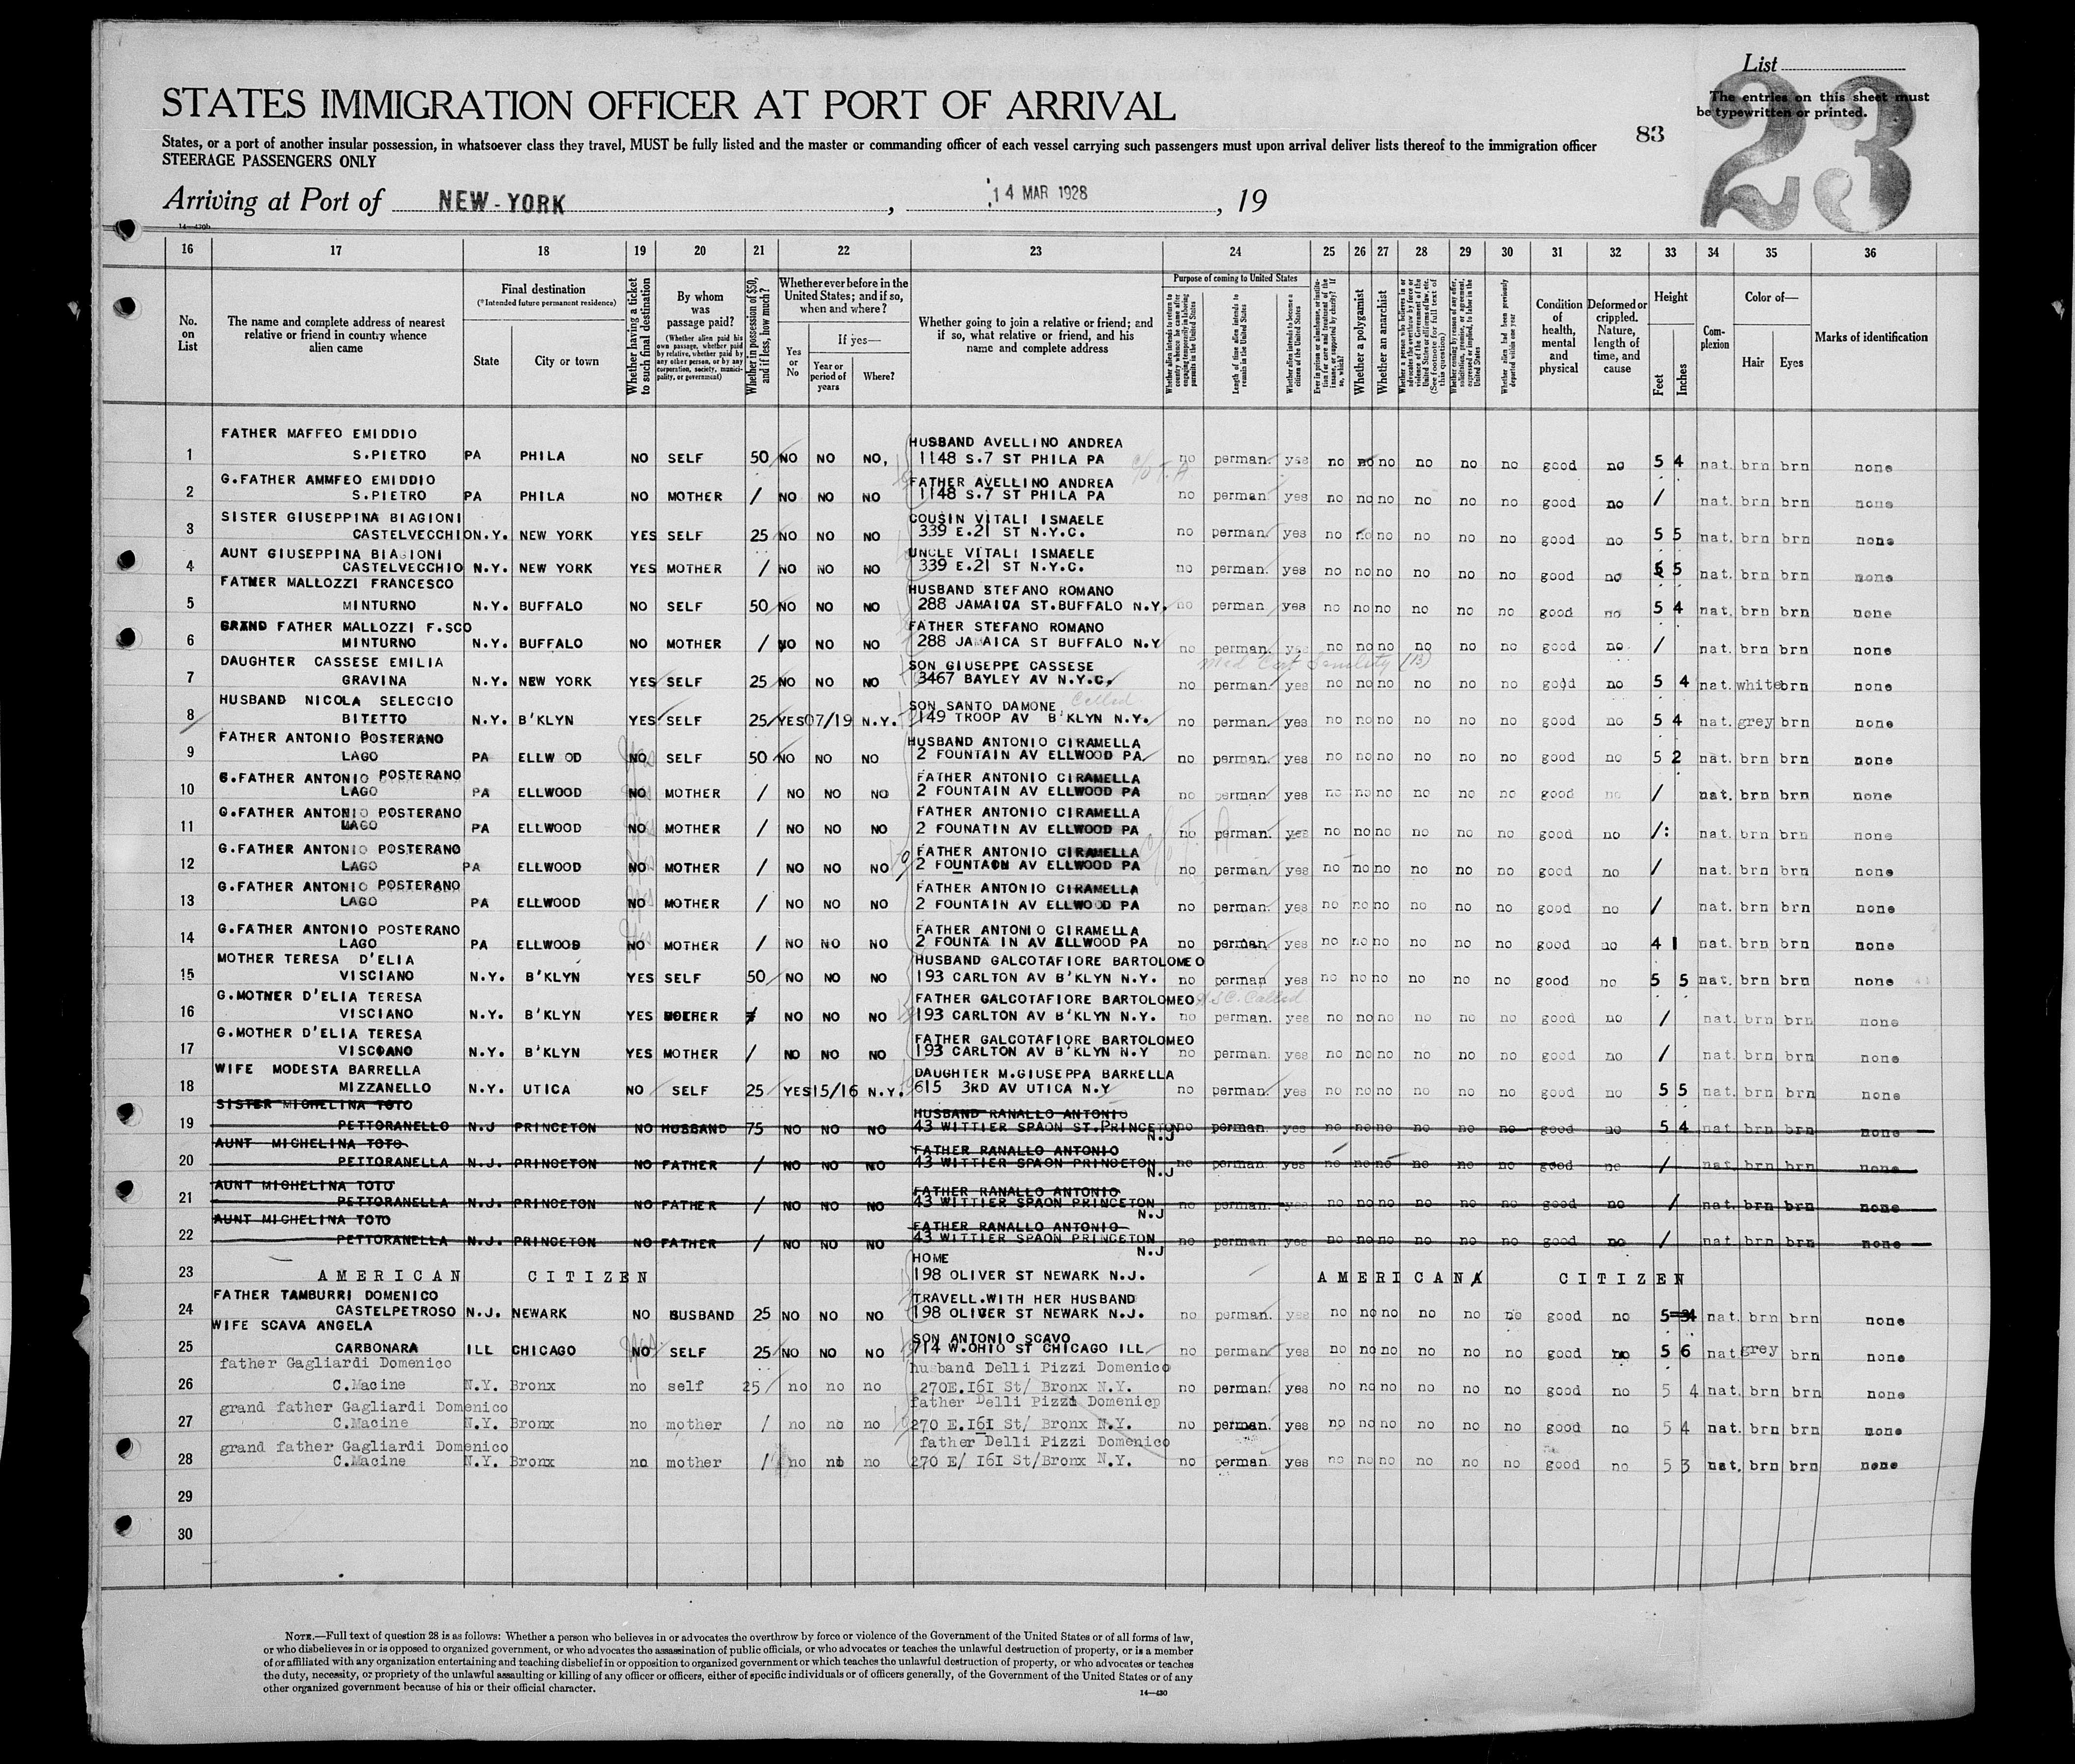 List
23
The entries on this sheet must
be typewritten or printed.
STATES IMMIGRATION OFFICER AT PORT OF ARRIVAL
83
States, or a port of another insular possession, in whatsoever class they travel, MUST be fully listed and the master or commanding officer of each vessel carrying such passengers must upon arrival deliver lists thereof to the immigration officer
STEERAGE PASSENGERS ONLY
Arriving at Port of NEW-YORK, 14 MAR 1928, 19
14—430b
16 17 18 19 20 21 22 23 24 25 26 27 28 29 30 31 32 33 34 35 36
No. on List
The name and complete address of nearest relative or friend in country whence alien came
Final destination
(*Intended future permanent residence)
State
City or town
Whether having a ticket to such final destination
By whom was passage paid?
(Whether alien paid his own passage, whether paid by relative, whether paid by any other person, or by any corporation, society, municipality, or government)
Whether in possession of $50, and if less, how much?
Whether ever before in the United States; and if so, when and where?
Yes or No
If yes—
Year or period of years
Where?
Whether going to join a relative or friend; and if so, what relative or friend, and his name and complete address
Purpose of coming to United States
Whether alien intends to return to country whence he came after engaging temporarily in laboring pursuits in the United States
Length of time alien intends to remain in the United States
Whether alien intends to become a citizen of the United States
Ever in prison or almshouse, or institution for care and treatment of the insane, or supported by charity? If so, which?
Whether a polygamist
Whether an anarchist
Whether a person who believes in or advocates the overthrow by force or violence of the Government of the United States or all forms of law, etc. (See footnote for full text of this question)
Whether coming by reason of any offer, solicitation, promise, or agreement, expressed or implied, to labor in the United States
Whether alien had been previously deported within one year
Condition of health, mental and physical
Deformed or crippled. Nature, length of time, and cause
Height
Feet
Inches
Complexion
Color of—
Hair
Eyes
Marks of identification
FATHER MAFFEO EMIDDIO HUSBAND AVELLINO ANDREA
1 S.PIETRO PA PHILA NO SELF 50 NO NO NO, 1148 S.7 ST PHILA PA no perman. yes no no no no no no good no 5 4 nat. brn brn none
G.FATHER AMMFEO EMIDDIO FATHER AVELLINO ANDREA
2 S.PIETRO PA PHILA NO MOTHER / NO NO NO 1148 S.7 ST PHILA PA no perman. yes no no no no no no good no / nat. brn brn none
SISTER GIUSEPPINA BIAGIONI COUSIN VITALI ISMAELE
3 CASTELVECCHIO N.Y. NEW YORK YES SELF 25 NO NO NO 339 E.21 ST N.Y.C. no perman. yes no no no no no no good no 5 5 nat. brn brn none
AUNT GIUSEPPINA BIAGIONI UNCLE VITALI ISMAELE
4 CASTELVECCHIO N.Y. NEW YORK YES MOTHER / NO NO NO 339 E.21 ST N.Y.C. no perman. yes no no no no no no good no 5 5 nat. brn brn none
FATHER MALLOZZI FRANCESCO HUSBAND STEFANO ROMANO
5 MINTURNO N.Y. BUFFALO NO SELF 50 NO NO NO 288 JAMAICA ST.BUFFALO N.Y. no perman yes no no no no no no good no 5 4 nat. brn brn none
GRAND FATHER MALLOZZI F.SCO FATHER STEFANO ROMANO
6 MINTURNO N.Y. BUFFALO NO MOTHER / NO NO NO 288 JAMAICA ST BUFFALO N.Y no perman. yes no no no no no no good no / nat. brn brn none
DAUGHTER CASSESE EMILIA SON GIUSEPPE CASSESE Med Cert Senility (13)
7 GRAVINA N.Y. NEW YORK YES SELF 25 NO NO NO 3467 BAYLEY AV N.Y.C. no perman. yes no no no no no no good no 5 4 nat. white brn none
HUSBAND NICOLA SELECCIO SON SANTO DAMONE Called
8 BITETTO N.Y. B'KLYN YES SELF 25 YES 07/19 N.Y. 149 TROOP AV B'KLYN N.Y. no perman. yes no no no no no no good no 5 4 nat. grey brn none
FATHER ANTONIO POSTERANO HUSBAND ANTONIO CIRAMELLA
9 LAGO PA ELLW OD NO yes SELF 50 NO NO NO 2 FOUNTAIN AV ELLWOOD PA no perman. yes no no no no no no good no 5 2 nat. brn brn none
G.FATHER ANTONIO POSTERANO FATHER ANTONIO CIRAMELLA
10 LAGO PA ELLWOOD NO MOTHER / NO NO NO 2 FOUNTAIN AV ELLWOOD PA no perman. yes no no no no no no good no / nat. brn brn none
G.FATHER ANTONIO POSTERANO FATHER ANTONIO CIRAMELLA
11 PA ELLWOOD NO MOTHER / NO NO NO 2 FOUNATIN AV ELLWOOD PA no perman. yes no no no no no no good no /: nat. brn brn none
G.FATHER ANTONIO POSTERANO FATHER ANTONIO CIRAMELLA
12 LAGO PA ELLWOOD NO MOTHER / NO NO NO 2 FOUNTAIN AV ELLWOOD PA no perman. yes no no no no no no good no / nat. brn brn none
G.FATHER ANTONIO POSTERANO FATHER ANTONIO CIRAMELLA
13 LAGO PA ELLWOOD NO MOTHER / NO NO NO 2 FOUNTAIN AV ELLWOOD PA no perman. yes no no no no no no good no / nat. brn brn none
G.FATHER ANTONIO POSTERANO FATHER ANTONIO CIRAMELLA
14 LAGO PA ELLWOOD NO MOTHER / NO NO NO 2 FOUNTA IN AV ELLWOOD PA no perman. yes no no no no no no good no 4 1 nat. brn brn none
MOTHER TERESA D'ELIA HUSBAND GALCOTAFIORE BARTOLOMEO
15 VISCIANO N.Y. B'KLYN YES SELF 50 NO NO NO 193 CARLTON AV B'KLYN N.Y. no perman yes no no no no no no good no 5 5 nat. brn brn none
G.MOTHER D'ELIA TERESA FATHER GALCOTAFIORE BARTOLOMEO Called
16 VISCIANO N.Y. B'KLYN YES MOTHER / NO NO NO 193 CARLTON AV B'KLYN N.Y. no perman. yes no no no no no no good no / nat. brn brn none
G.MOTHER D'ELIA TERESA FATHER GALCOTAFIORE BARTOLOMEO
17 VISCOANO N.Y. B'KLYN YES MOTHER / NO NO NO 193 CARLTON AV B'KLYN N.Y no perman. yes no no no no no no good no / nat. brn brn none
WIFE MODESTA BARRELLA DAUGHTER M.GIUSEPPA BARRELLA
18 MIZZANELLO N.Y. UTICA NO SELF 25 YES 15/16 N.Y. 615 3RD AV UTICA N.Y no perman. yes no no no no no no good no 5 5 nat. brn brn none
SISTER MICHELINA TOTO HUSBAND RANALLO ANTONIO
19 PETTORANELLO N.J PRINCETON NO HUSBAND 75 NO NO NO 43 WITTIER SPAON ST.PRINCETON N.J no perman. yes no no no no no no good no 5 4 nat brn brn none
AUNT MICHELINA TOTO FATHER RANALLO ANTONIO
20 PETTORANELLA N.J. PRINCETON NO FATHER / NO NO NO 43 WITTIER SPAON PRINCETON N.J no perman. yes no no no no no no good no / nat. brn brn none
AUNT MICHELINA TOTO FATHER RANALLO ANTONIO
21 PETTORANELLA N.J. PRINCETON NO FATHER / NO NO NO 43 WITTIER SPAON PRINCETON N.J no perman. yes no no no no no no good no / nat. brn brn none
AUNT MICHELINA TOTO FATHER RANALLO ANTONIO
22 PETTORANELLA N.J. PRINCETON NO FATHER / NO NO NO 43 WITTIER SPAON PRINCETON N.J no perman. yes no no no no no no good no / nat. brn brn none
HOME
23 AMERICAN CITIZEN 198 OLIVER ST NEWARK N.J. AMERICANA CITIZEN
FATHER TAMBURRI DOMENICO TRAVELL.WITH HER HUSBAND
24 CASTELPETROSO N.J. NEWARK NO HUSBAND 25 NO NO NO 198 OLIVER ST NEWARK N.J. no perman. yes no no no no no no good no 5 nat. brn brn none
WIFE SCAVA ANGELA SON ANTONIO SCAVO
25 CARBONARA ILL CHICAGO NO yes SELF 25 NO NO NO 714 W.OHIO ST CHICAGO ILL no perman. yes no no no no no no good no 5 6 nat grey brn none
father Gagliardi Domenico husband Delli Pizzi Domenico
26 C.Macine N.Y. Bronx no self 25 no no no 270E.161 St/ Bronx N.Y. no perman. yes no no no no no no good no 5 4 nat. brn brn none
grand father Gagliardi Domenico father Delli Pizzi Domenico
27 C.Macine N.Y. Bronx no mother / no no no 270 E.161 St/ Bronx N.Y. no perman. yes no no no no no no good no 5 4 nat. brn brn none
grand father Gagliardi Domenico father Delli Pizzi Domenico
28 C.Macine N.Y. Bronx no mother / no no no 270 E/ 161 St/Bronx N.Y. no perman. yes no no no no no no good no 5 3 nat. brn brn none
29
30
NOTE.—Full text of question 28 is as follows: Whether a person who believes in or advocates the overthrow by force or violence of the Government of the United States or of all forms of law,
or who disbelieves in or is opposed to organized government, or who advocates the assassination of public officials, or who advocates or teaches the unlawful destruction of property, or is a member
of or affiliated with any organization entertaining and teaching disbelief in or opposition to organized government or which teaches the unlawful destruction of property, or who advocates or teaches
the duty, necessity, or propriety of the unlawful assaulting or killing of any officer or officers, either of specific individuals or of officers generally, of the Government of the United States or of any
other organized government because of his or their official character.
14—430